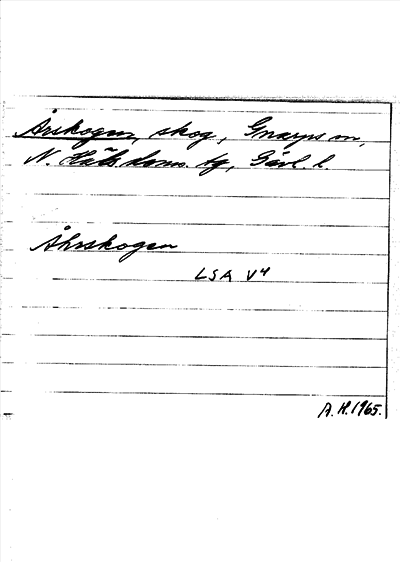 Årskogen, skog, Gnarps sn,
N. Häls. doms. tg, Gävl. l.
Åhrskogen
LSA V4
A.H. 1965.